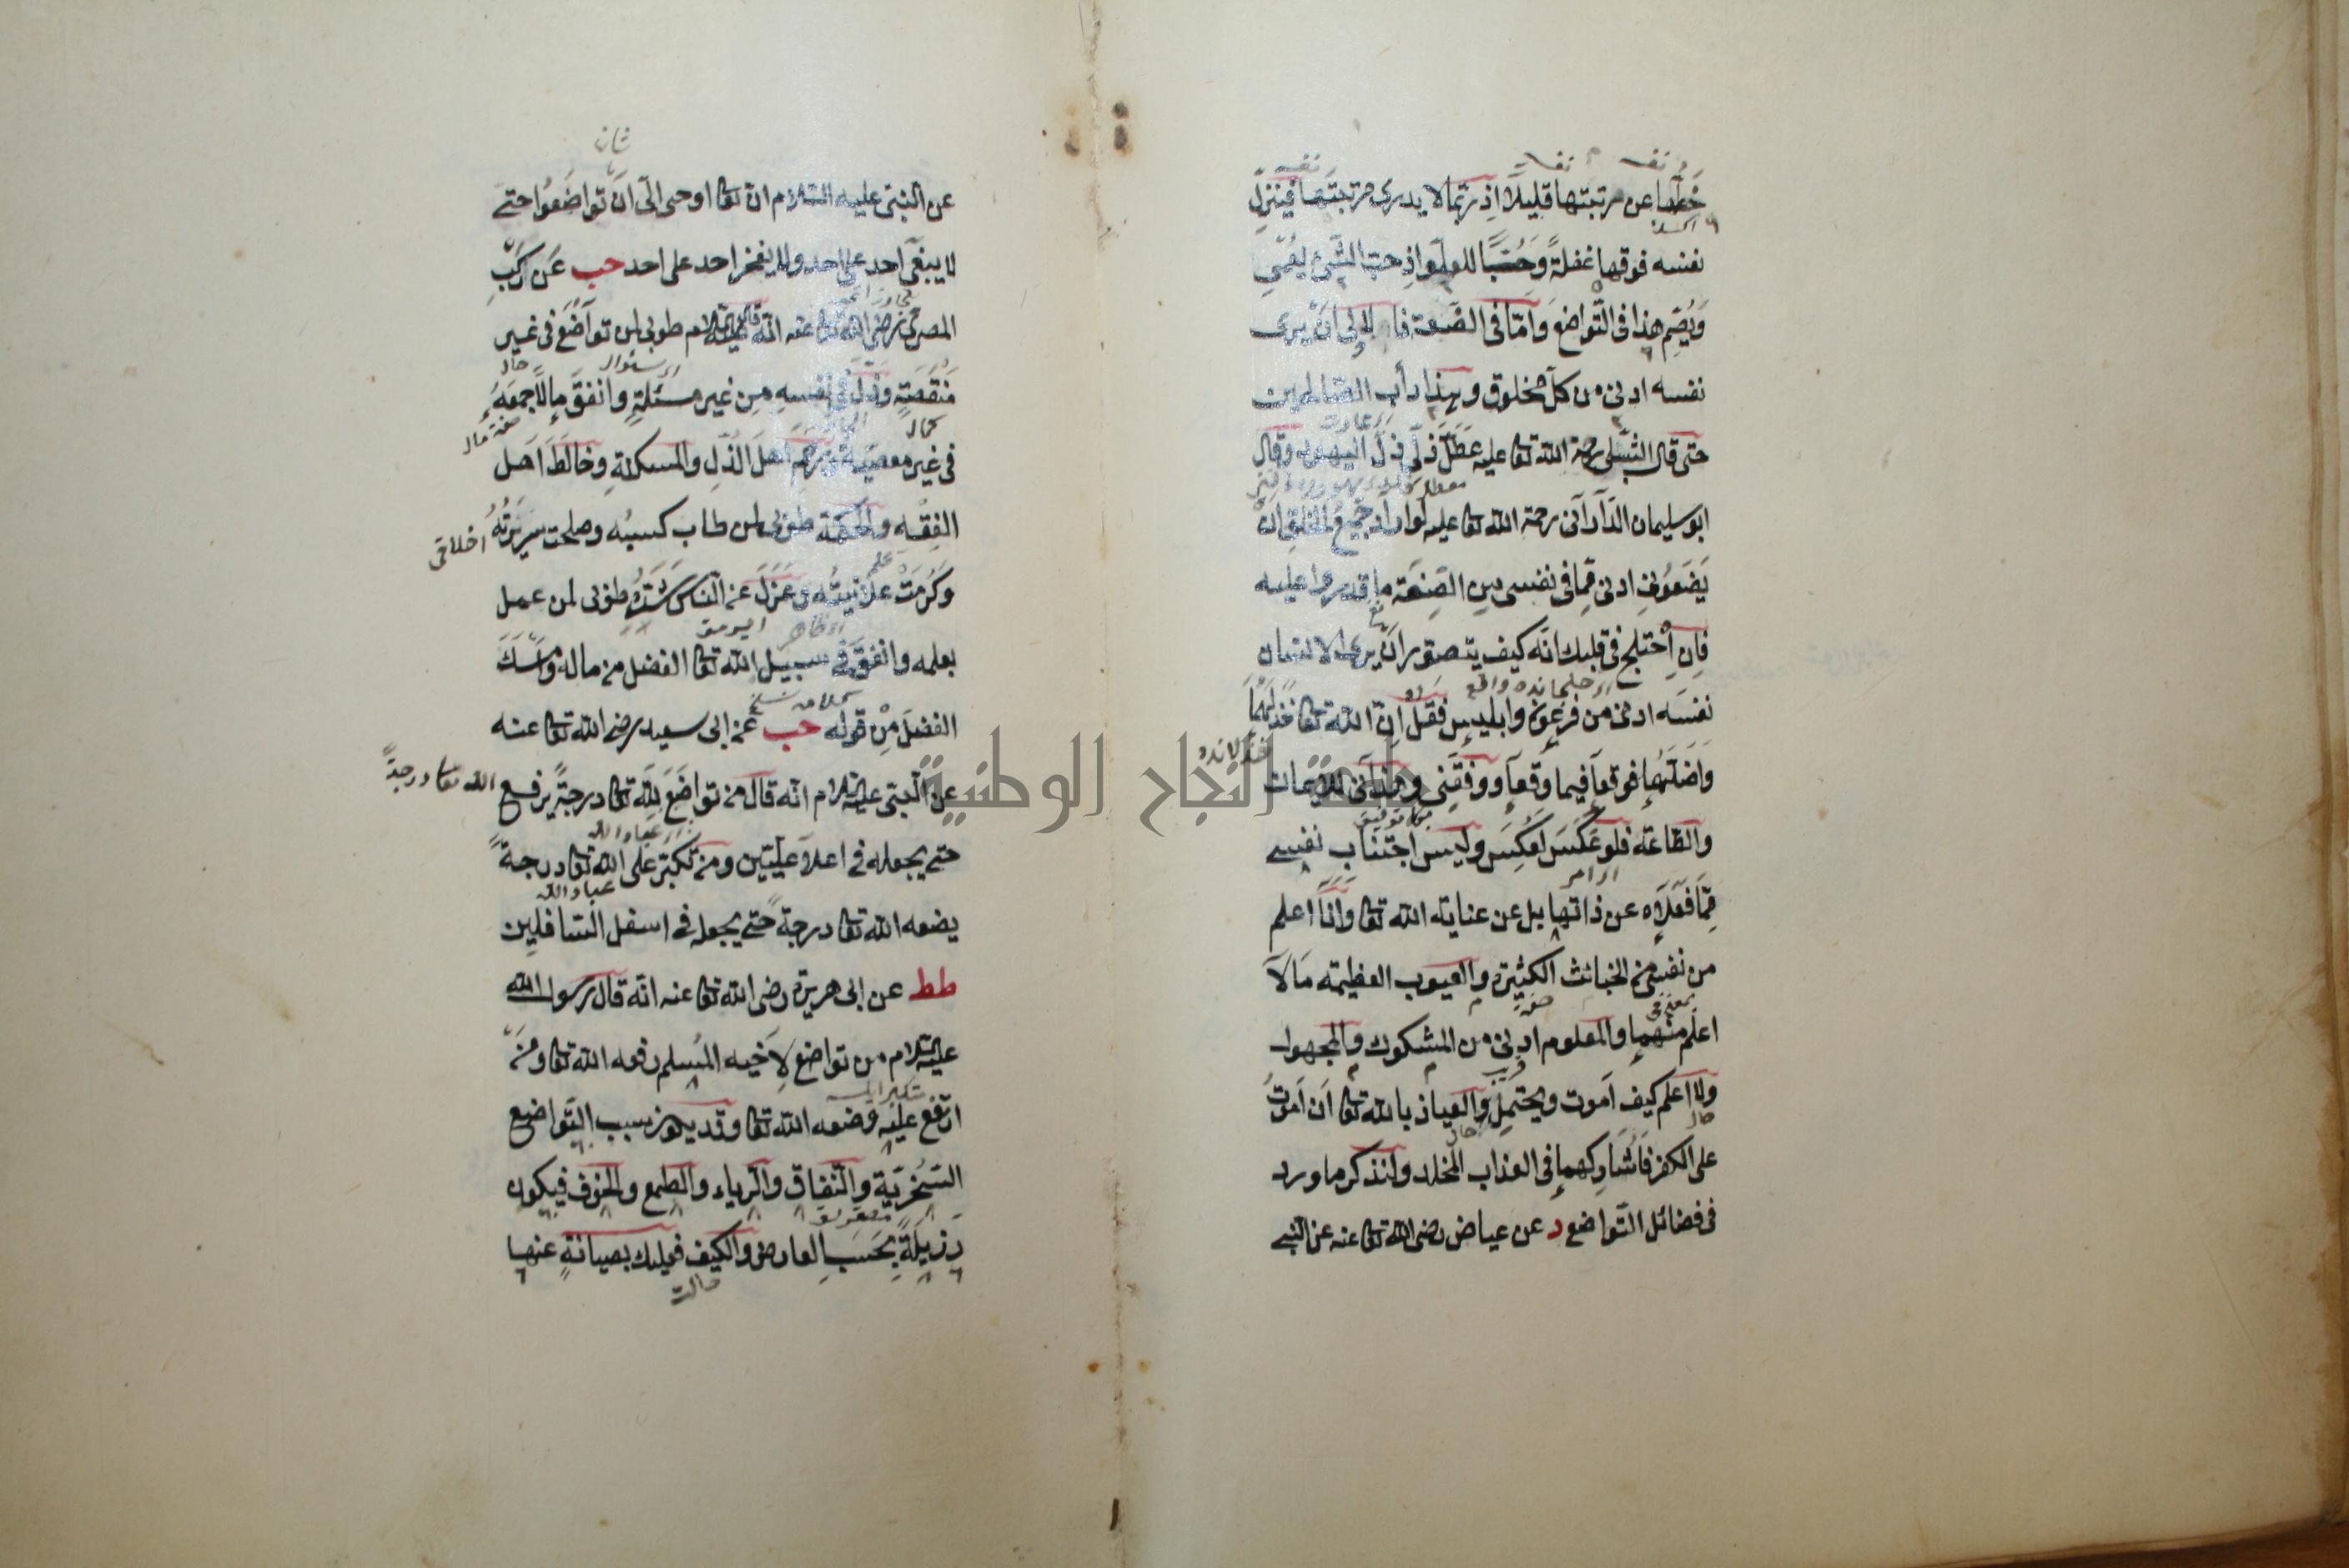 حطها عن مرتبتها قليلا اذ ربما لا يدرى مرتبتها فينزل
نفسه فوقها غفلةً وحُبًّا للعلو اذ حب الشئ يُعمى
وَيُصِمّ هذا فى التّواضع وامّا فى الضّعة فالاولى ان يرى
نفسه ادنى من كلّ مخلوق وهذا دأب الصالحين
حتى قال الشّبلى رحمة الله تعا عليه عَطّلَ ذُلّى ذُلَّ اليهود وقال
ابو سليمان الدّارانى رحمة الله تعا عليه لو اراد جميعُ الخلق ان
يَضَعُونى ادنى ممّا فى نفسى من الضّعَة ما قدروا عليه
فاِن اُختلج فى قلبك انّه كيف يتصوّر ان يرى الانسان
نفسَه ادنى من فرعون وابليس فقل ان الله تعا خذلهما
واَضلّهما فوقعا فيما وقعا ووفّقنى وهدانى للايمان
والطّاعة فلو عَكَسَ لعُكِسَ وليس اجتناب نفسى
ممّا فعلاه عن ذاتها بل عن عناية الله تعا وانا اعلم
من نفسى من الخبائث الكثيرة والعيوب العظيمة مَا لا
اعلم منهما والمعلوم ادنى من المشكوك والمجهول
ولا اعلم كيف اَموت ويحتمل والعياذ بالله تعا ان اَموت
على الكفر فاُشاركهما فى العذاب المخلد ولنذكر ما ورد
فى فضائل التّواضع د عن عياض رضى الله تعا عنه عن النبى
عن النّبى عليه السّلام انّ تعا اوحى الىّ ان تواضَعُوا حتى
لا يبغى احد على احد ولا يفخر احد على احد حب عَن ركب
المصرى رضى الله تعا عنه انّه قال عليه السلام طوبى لمن تواضَع فى غير
مَنْقَصَةٍ وذلّ فى نفسه مِن غير مسئلةٍ وانفق مالًا جمعَهُ
فى غير معصية ورحم اهلَ الذُّلِ والمسكنةِ وخالَطَ اَهل
الفِقْه والحكمة طوبى لمن طاب كسبُه وصلحت سريرتُهُ
وَكَرُمَتْ علانيتُه وعَزَلَ عن النّاس شَرَّهُ طوبى لمن عمل
بعلمه وانفَقَ فى سبيل الله تعا الفضل من ماله وَاَمْسَكَ
الفضلَ مِنْ قوله حب عن ابى سعيد رضى الله تعا عنه
عن النّبى عليه السّلام انّه قال من تواضَعَ للّه تعا درجةً يرفع
الله تعا درجةً
حتى يجعله فى اعلا عليّين ومن تكبّر على الله تعا درجةً
يضعه الله تعا درجةً حتى يجعله فى اسفل السّافلين
طط عن ابى هريرة رضى الله تعا عنه انّه قال رسول الله
عليه السّلام من تواضع لاَخيه المُسلم رفعه الله تعا ومَن
ارتفع عليه وضعه الله تعا وقد يكون سبب التّواضع
السّخريّة والنّفاق والرّياء والطمع والخوف فيكون
رذيلةً بحَسَبِ العارض والكيف فعليك بصيانةٍ عنها
جامعة النجاح الوطنية